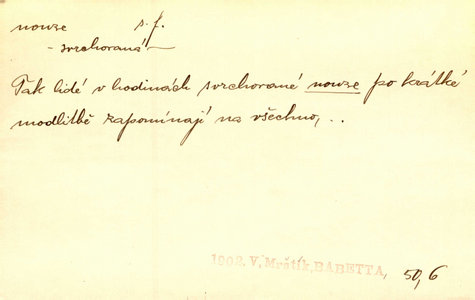 nouze s. f.
- svrchovaná -
Tak lidé v hodinách svrchované nouze po krátké
modlitbě zapomínají na všechno, ..
1902. V. Mrštík, BABETTA, 50, 6